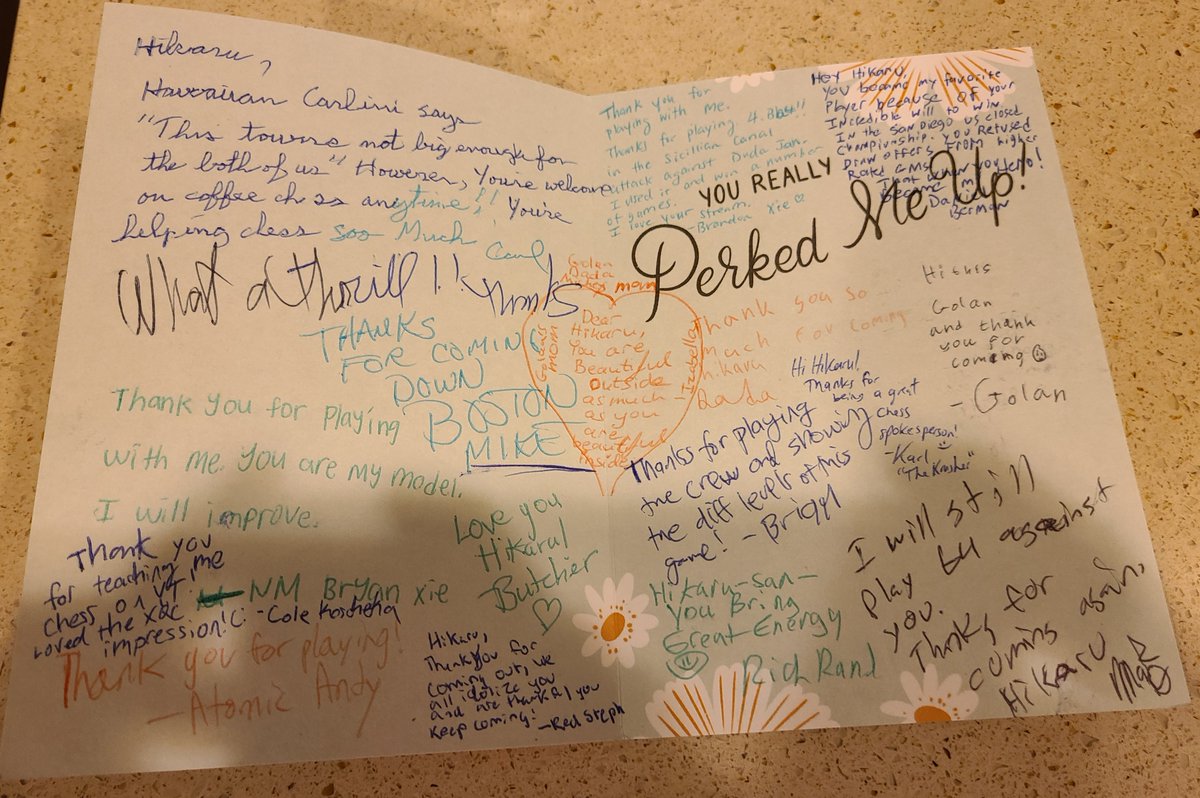 Hikaru,
Hawaiian Carlini says
"This towns not big enough for
the both of us" However, You're welcome
on coffee chess anytime!! You're
helping chess soo Much
Carl
What a thrill!! Thanks
THANKS
FOR COMING
DOWN
BOSTON
MIKE
Thank you for playing
with me. You are my model.
I will improve.
NM Bryan xie
Thank you
for teaching me
chess on YT!
Loved the xQc
impression! C: - Cole
Thank you for playing!
- Atomic Andy
Hikaru,
Thank you for
coming out, we
all idolize you
and are thankful you
keep coming!
- Red Steph
Love you
Hikaru!
Butcher
Golan
Dada
mom
Golan's
mom
Dear
Hikaru,
You are
Beautiful
Outside
as much
as you
are
beautiful
inside
- Izabella
Thank you for
playing with me.
Thanks for playing 4. Bxb5!!
in the Sicilian Canal
attack against Dada Jan.
I used it and won a number
of games.
I love your stream.
- Brandon Xie
YOU REALLY
Perked Me Up!
Hey Hikaru,
You became my favorite
player because of your
Incredible will to win
In the San Diego US Closed
Championship. You Refused
Draw offers from higher
Rated GMs
Berman
Thank you so
much for coming
Hikaru
Dada
Hi this
Golan
and thank
you for
coming
- Golan
Hi Hikaru!
Thanks for
being a great
chess
spokesperson!
- Karl
"The Krusher"
Thanks for playing
the crew and showing
the diff levels of this
game! -
Hikaru-san-
You Bring
Great Energy
Rich Rand
I will still
play b4 against
you.
Thanks for
coming again,
Hikaru